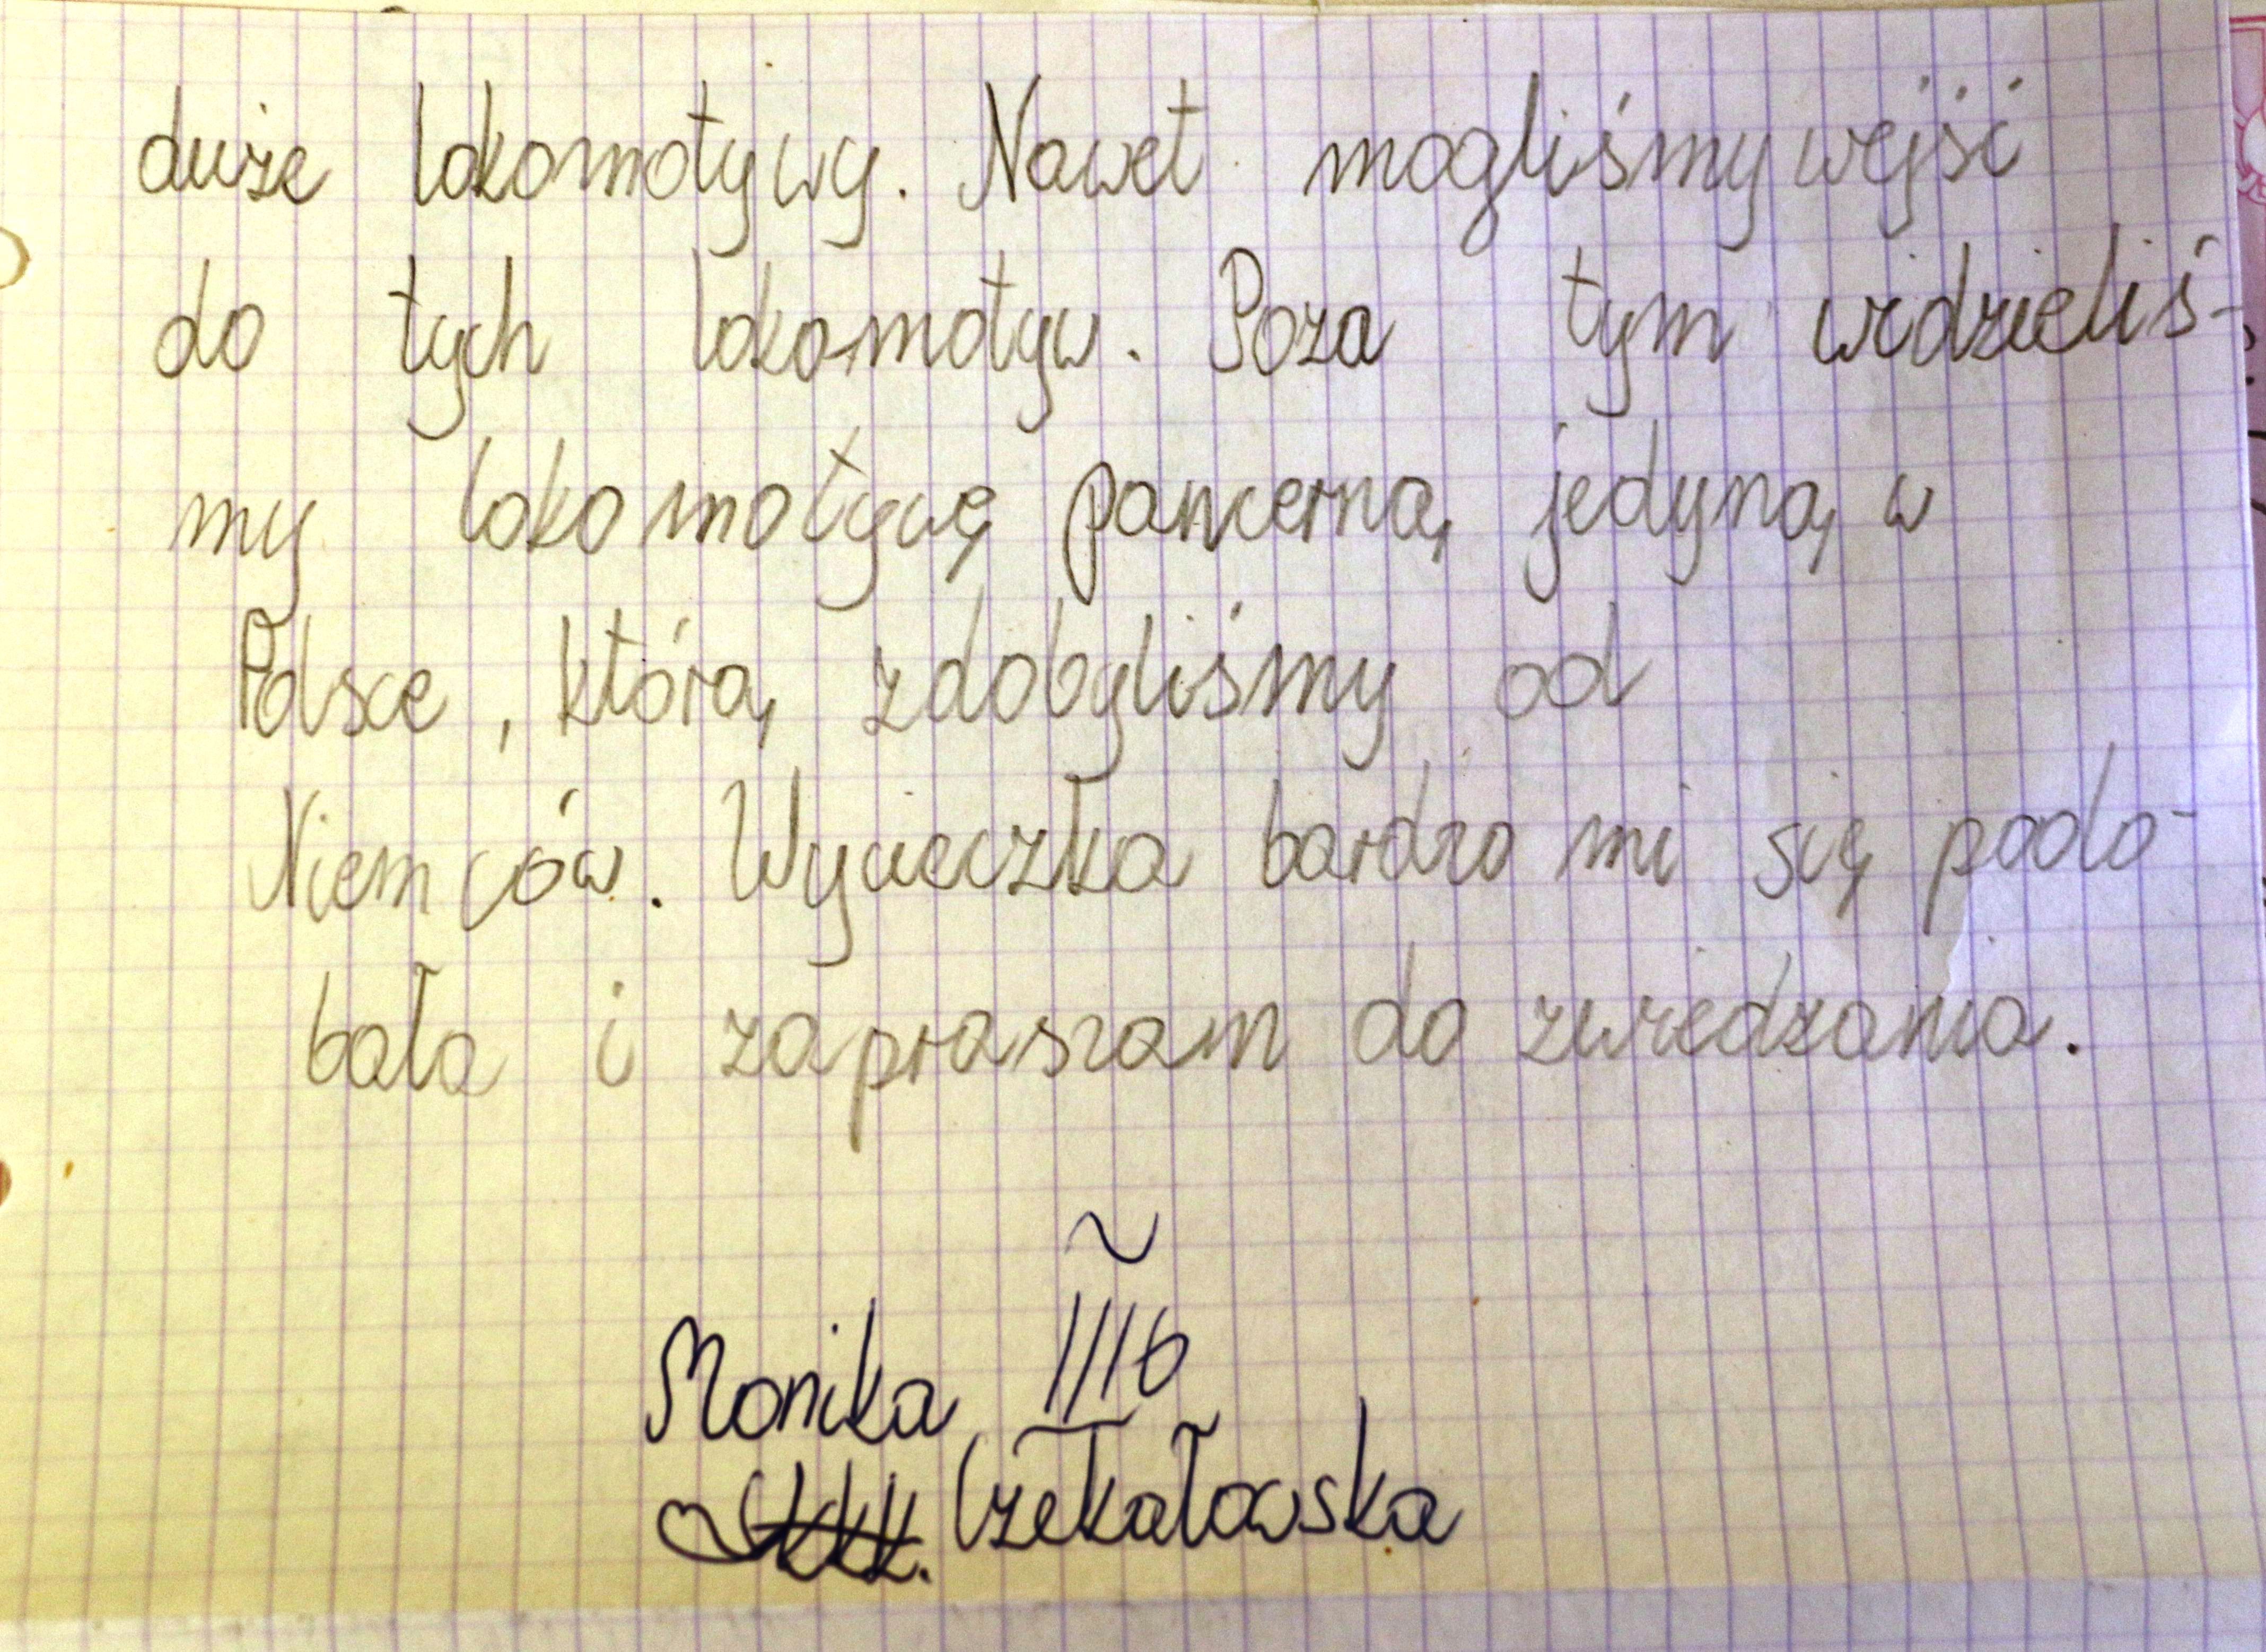 duże lokomotywy. Nawet mogliśmy wejść
do tych lokomotyw. Poza tym widzieliś-
my lokomotywę pancerną, jedyną w
Polsce, którą zdobyliśmy od
Niemców. Wycieczka bardzo mi się podo-
bała i zapraszam do zwiedzania.
~
Monika IIIb
Czekałowska